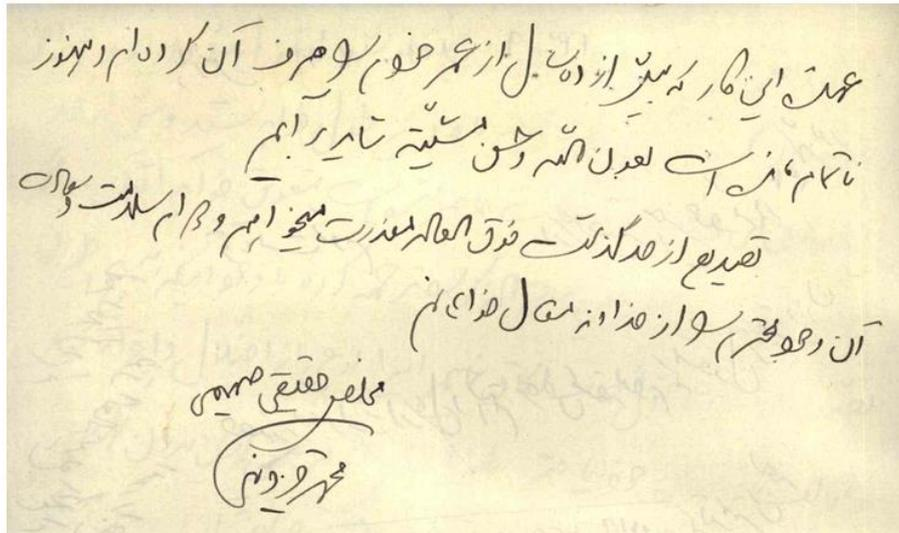 عهدهٔ این کار که بیش از ده سال از عمر خودم را صرف آن کرده‌ام و هنوز
ناتمام است بعون الله و حسن مشیّته شاید برآیم
تصدیع از حد گذشت فوق‌العاده معذرت میخواهم و دوام سلامت و سعادت
آن وجود محترم را از خداوند متعال خواهانم
مخلص حقیقی صمیمی
محمد قزوینی